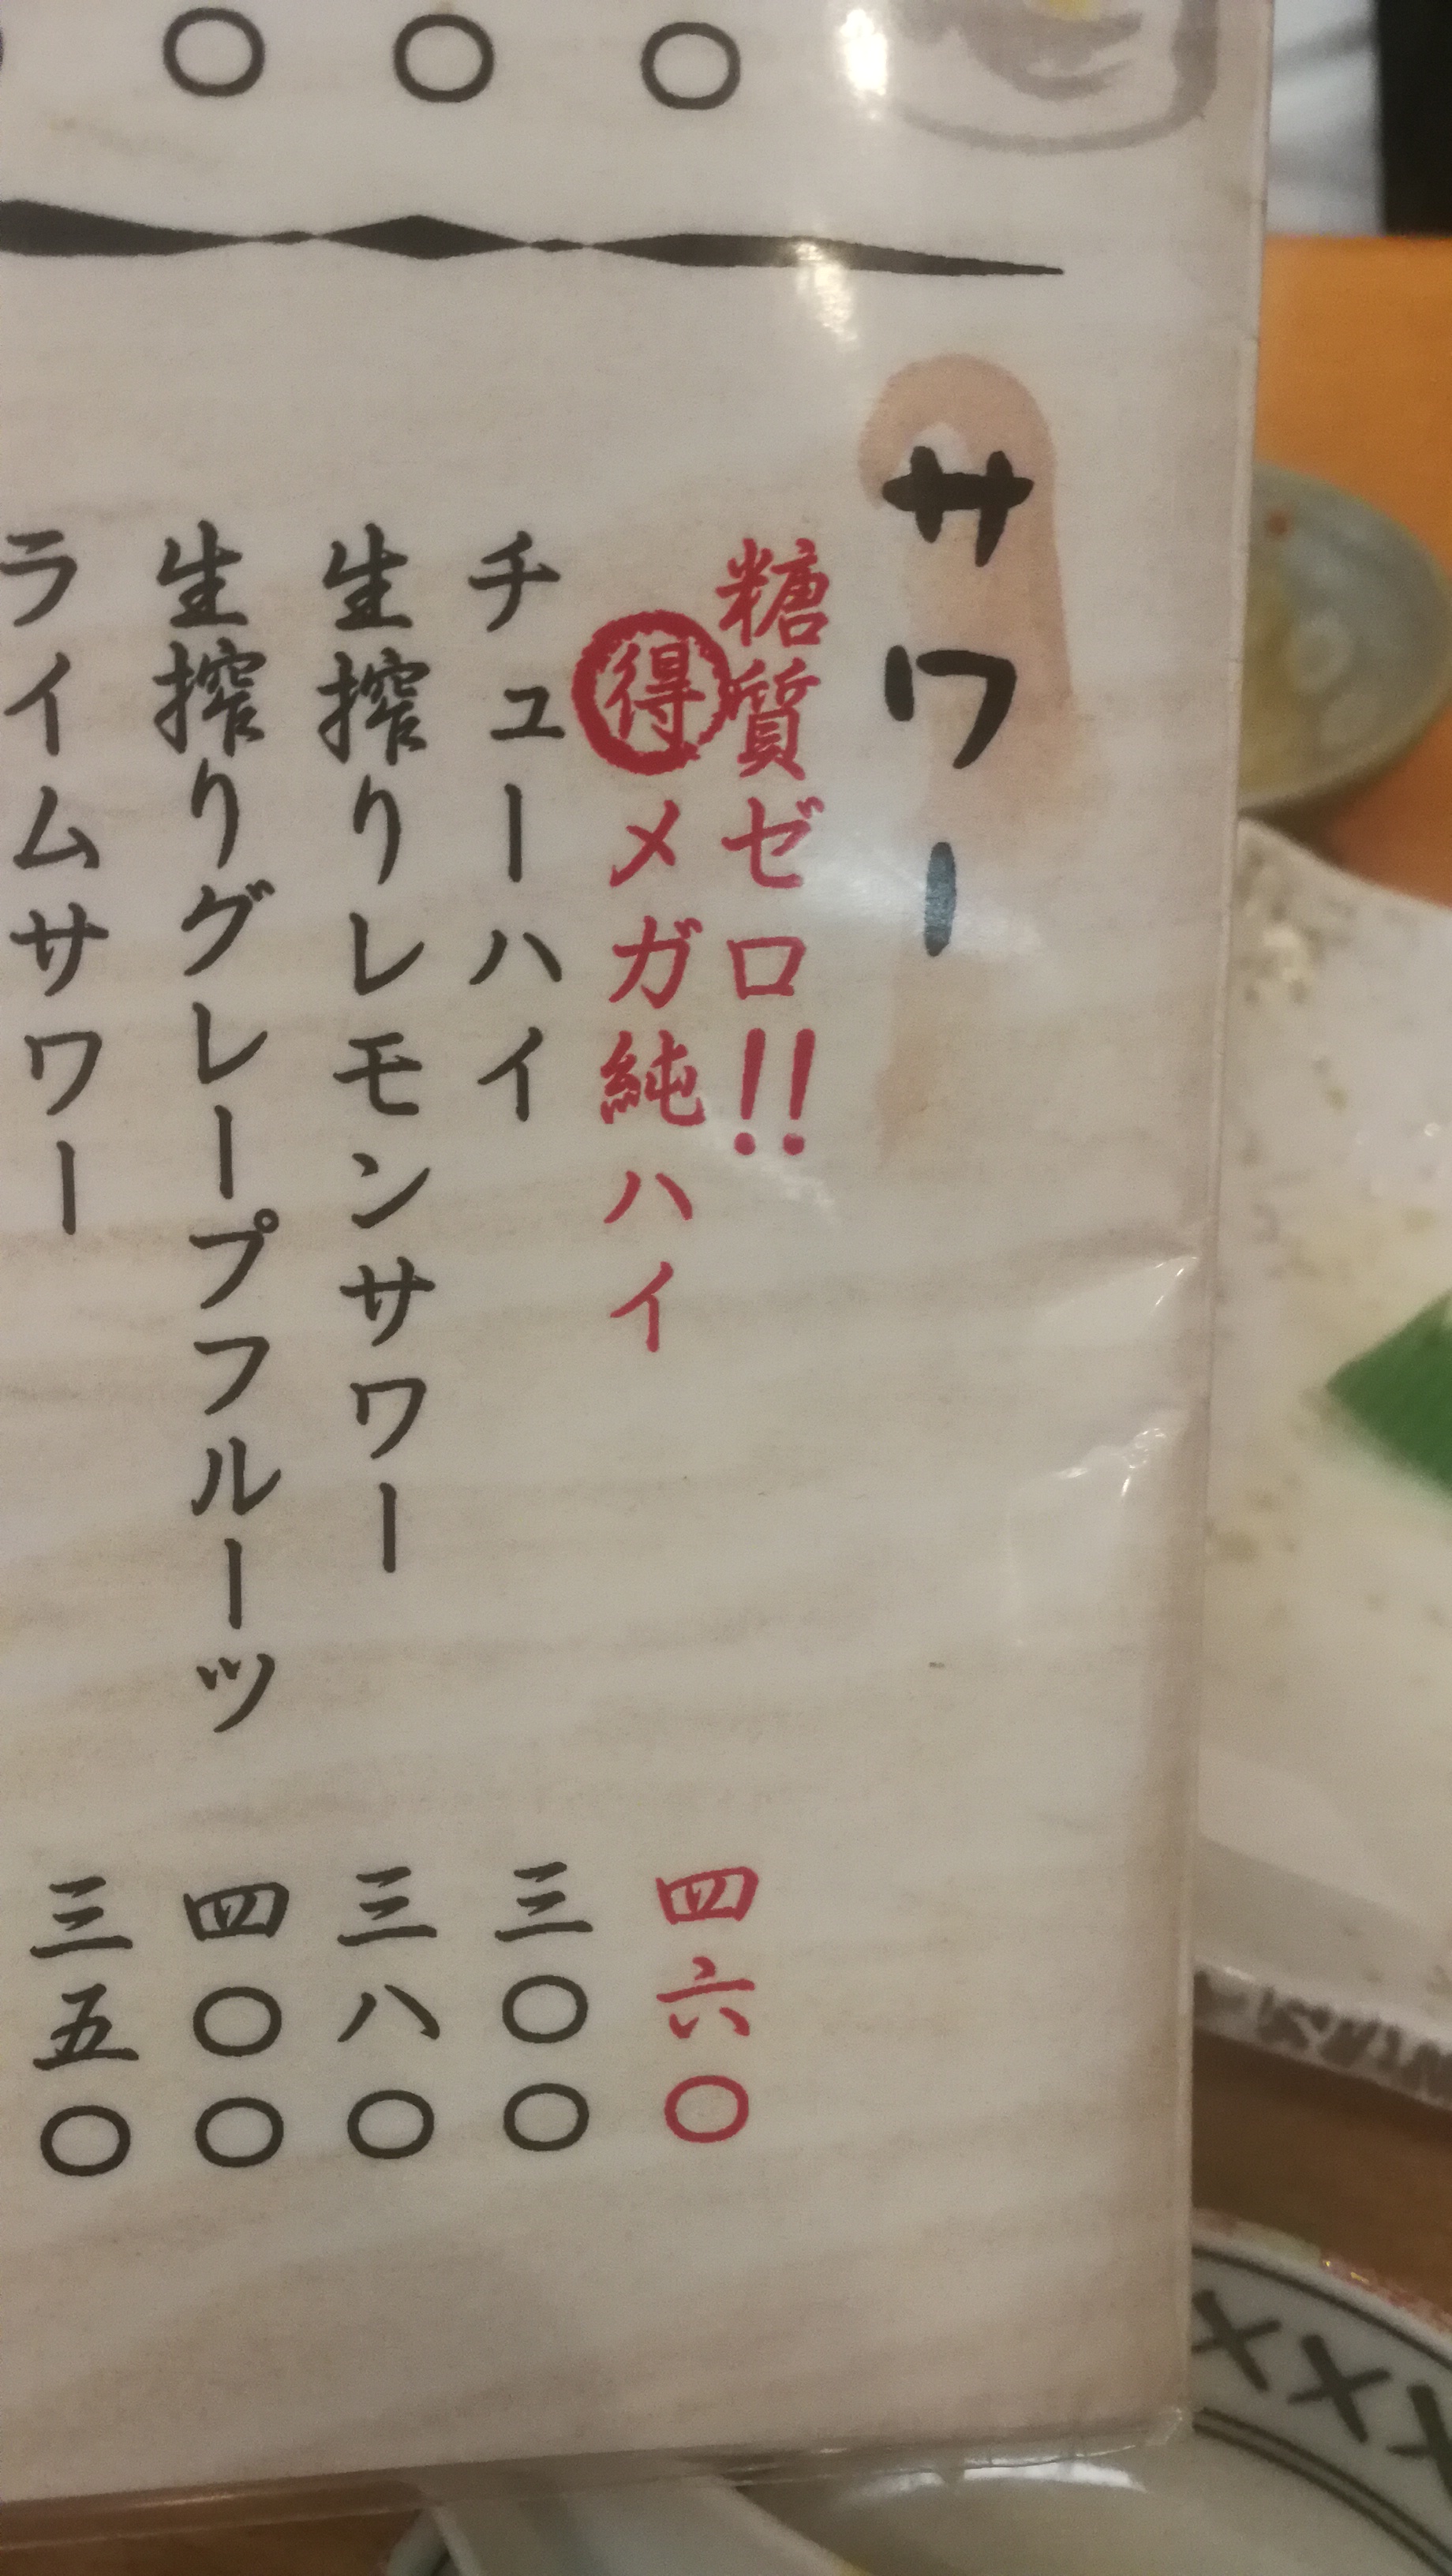 〇
〇
〇
サワー
糖質ゼロ!!
得 メガ純ハイ 四六〇
チューハイ 三〇〇
生搾りレモンサワー 三八〇
生搾りグレープフルーツ 四〇〇
ライムサワー 三五〇